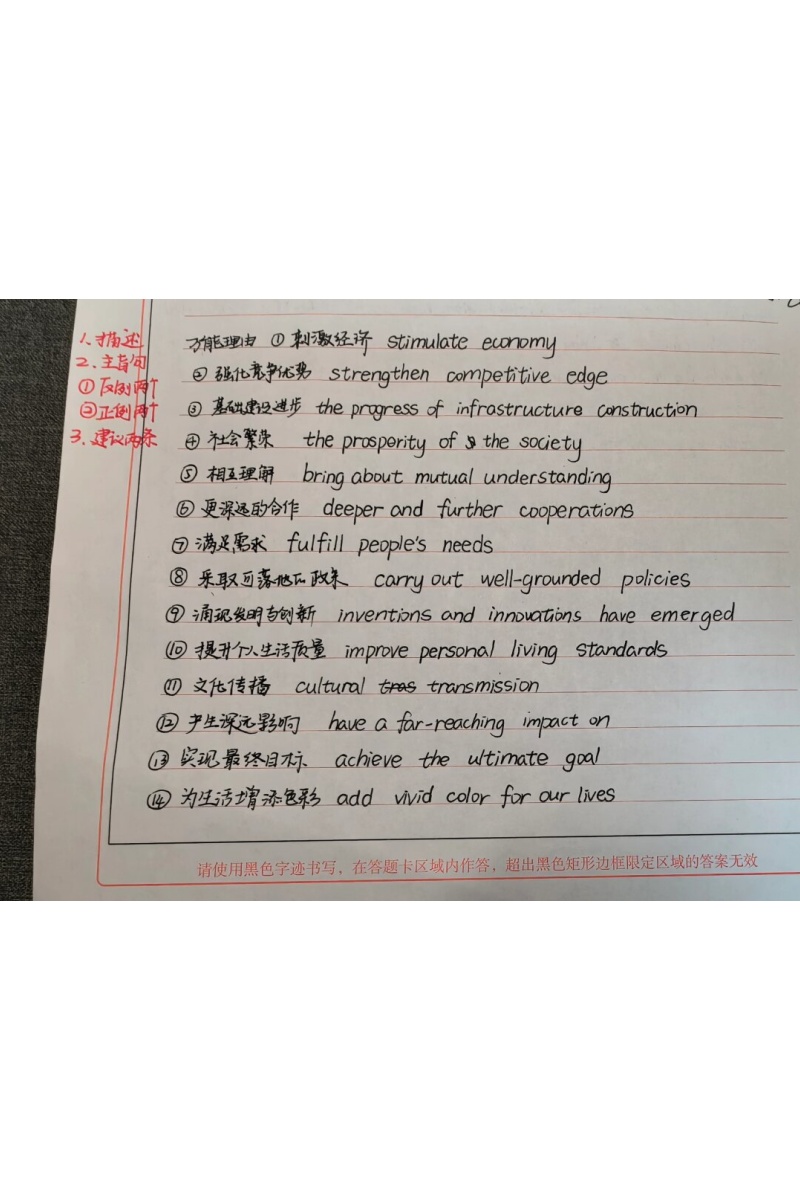 1、描述
2、主旨句
①反例两个
②正例两个
3、建议两条
万能理由 ① 刺激经济 stimulate economy
② 强化竞争优势 strengthen competitive edge
③ 基础建设进步 the progress of infrastructure construction
④ 社会繁荣 the prosperity of the society
⑤ 相互理解 bring about mutual understanding
⑥ 更深远的合作 deeper and further cooperations
⑦ 满足需求 fulfill people's needs
⑧ 采取可落地的政策 carry out well-grounded policies
⑨ 涌现发明与创新 inventions and innovations have emerged
⑩ 提升个人生活质量 improve personal living standards
⑪ 文化传播 cultural transmission
⑫ 产生深远影响 have a far-reaching impact on
⑬ 实现最终目标 achieve the ultimate goal
⑭ 为生活增添色彩 add vivid color for our lives
请使用黑色字迹书写，在答题卡区域内作答，超出黑色矩形边框限定区域的答案无效